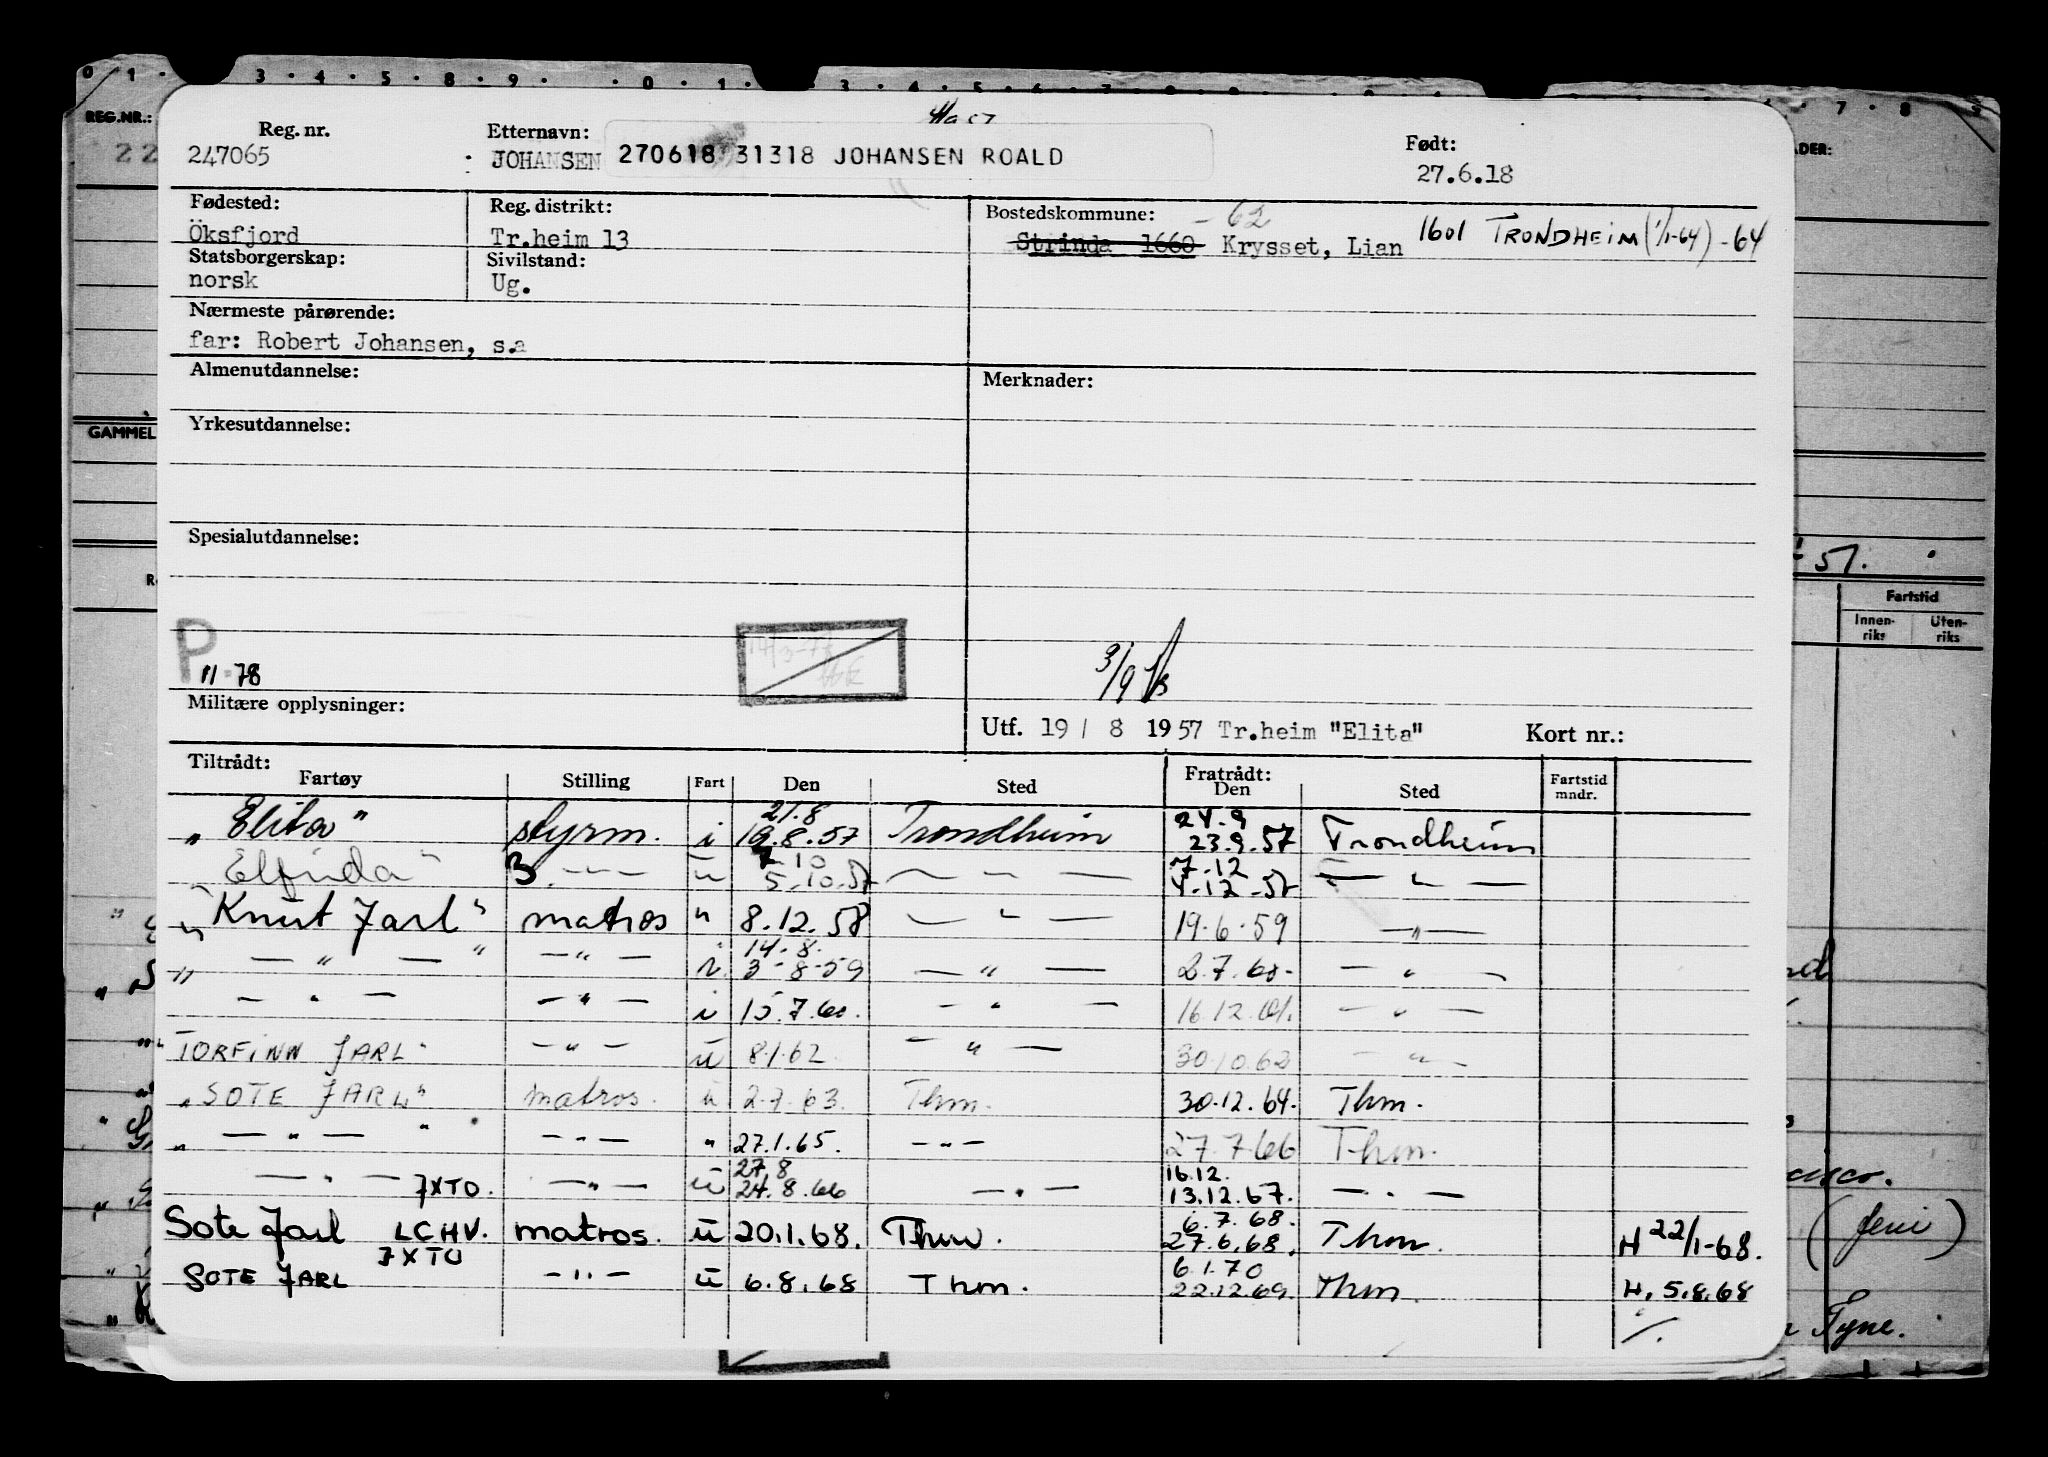 0 1 · 3 · 4 · 5 · 8 · 9 · · 0 · 1 · 3 · 4 · 5 · 6 · 7 · 7 · 8
REG.NR.:
22
Reg. nr.
247065
Etternavn:
JOHANSEN 270618 31318 JOHANSEN ROALD
Født:
27.6.18
Fødested:
Öksfjord
Reg. distrikt:
Tr.heim 13
Bostedskommune: - 62
Strinda 1660 Krysset, Lian 1601 TRONDHEIM (1/1-64) -64
Statsborgerskap:
norsk
Sivilstand:
Ug.
Nærmeste pårørende:
far: Robert Johansen, s.a
Almenutdannelse:
Merknader:
GAMMEL
Yrkesutdannelse:
Spesialutdannelse:
51.
Fartstid
Innen-riks Uten-riks
P
11.78
14/3-78
3/9
Militære opplysninger:
Utf. 19 / 8 1957 Tr.heim "Elita" Kort nr.:
Tiltrådt: Fratrådt:
Fartøy Stilling Fart Den Sted Den Sted Fartstid mndr.
21.8 24.9
„ Elita" styrm. i 19.8.57 Trondheim 23.9.57 Trondheim
10 7-12
Elfrida" 3. —„— u 5.10.57 — „ — 4.12.57 — „ —
„ Knut Jarl" matros " 8.12.58 — „ — 19.6.59 — „ —
14.8.
„ — „ — " — „ — i 3-8-59 — „ — 2.7.60 — „ —
— „ — — „ — i 15.7.60. — „ — 16.12.61. — „ —
TORFINN JARL" — „ — u 8.1.62 — „ — 30.10.62 — „ —
„ SOTE JARL" matros. u 2.7.63. Thm. 30.12.64. Thm.
„ — „ — " — „ — " 27.1.65. — „ — 27.7.66 Thm.
27.8 16.12.
— „ — JXTO. — „ — u 24.8.66 — „ — 13.12.67. — „ —
6.7.68.
Sote Jarl LCHV. matros. u 20.1.68. Thm. 27.6.68. Thm. H 22/1-68.
JXTO 6.1.70
SOTE JARL — „ — u 6.8.68 Thm. 22.12.69. Thm. H. 5.8.68
Tyne.